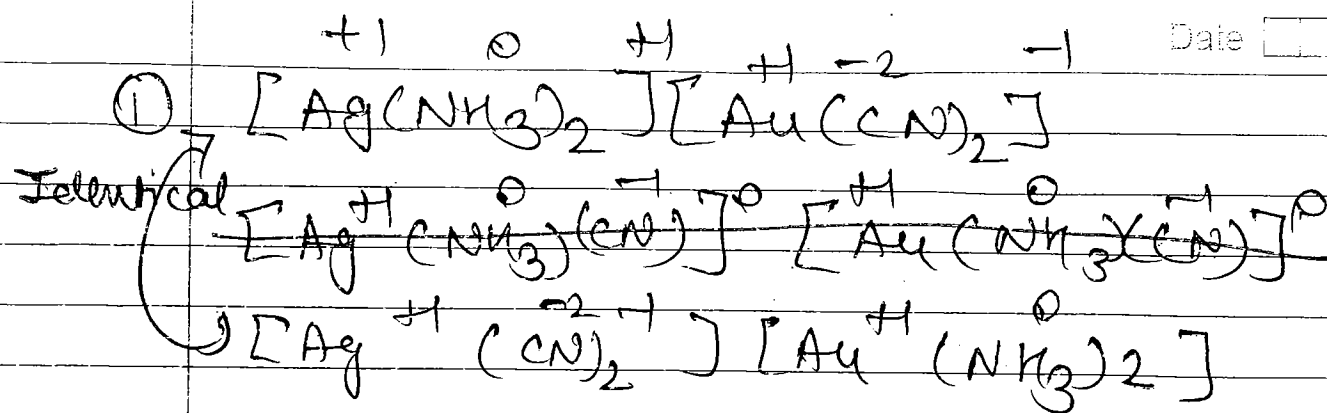 Date
+1 0 +1 +1 -2 -1
① [Ag(NH3)2][Au(CN)2]
Identical [Ag+1 (NH3)0 (CN)-1]0 [Au+1 (NH3)0(CN)-1]0
[Ag+1 (CN)2-2]-1 [Au+1 (NH3)20]